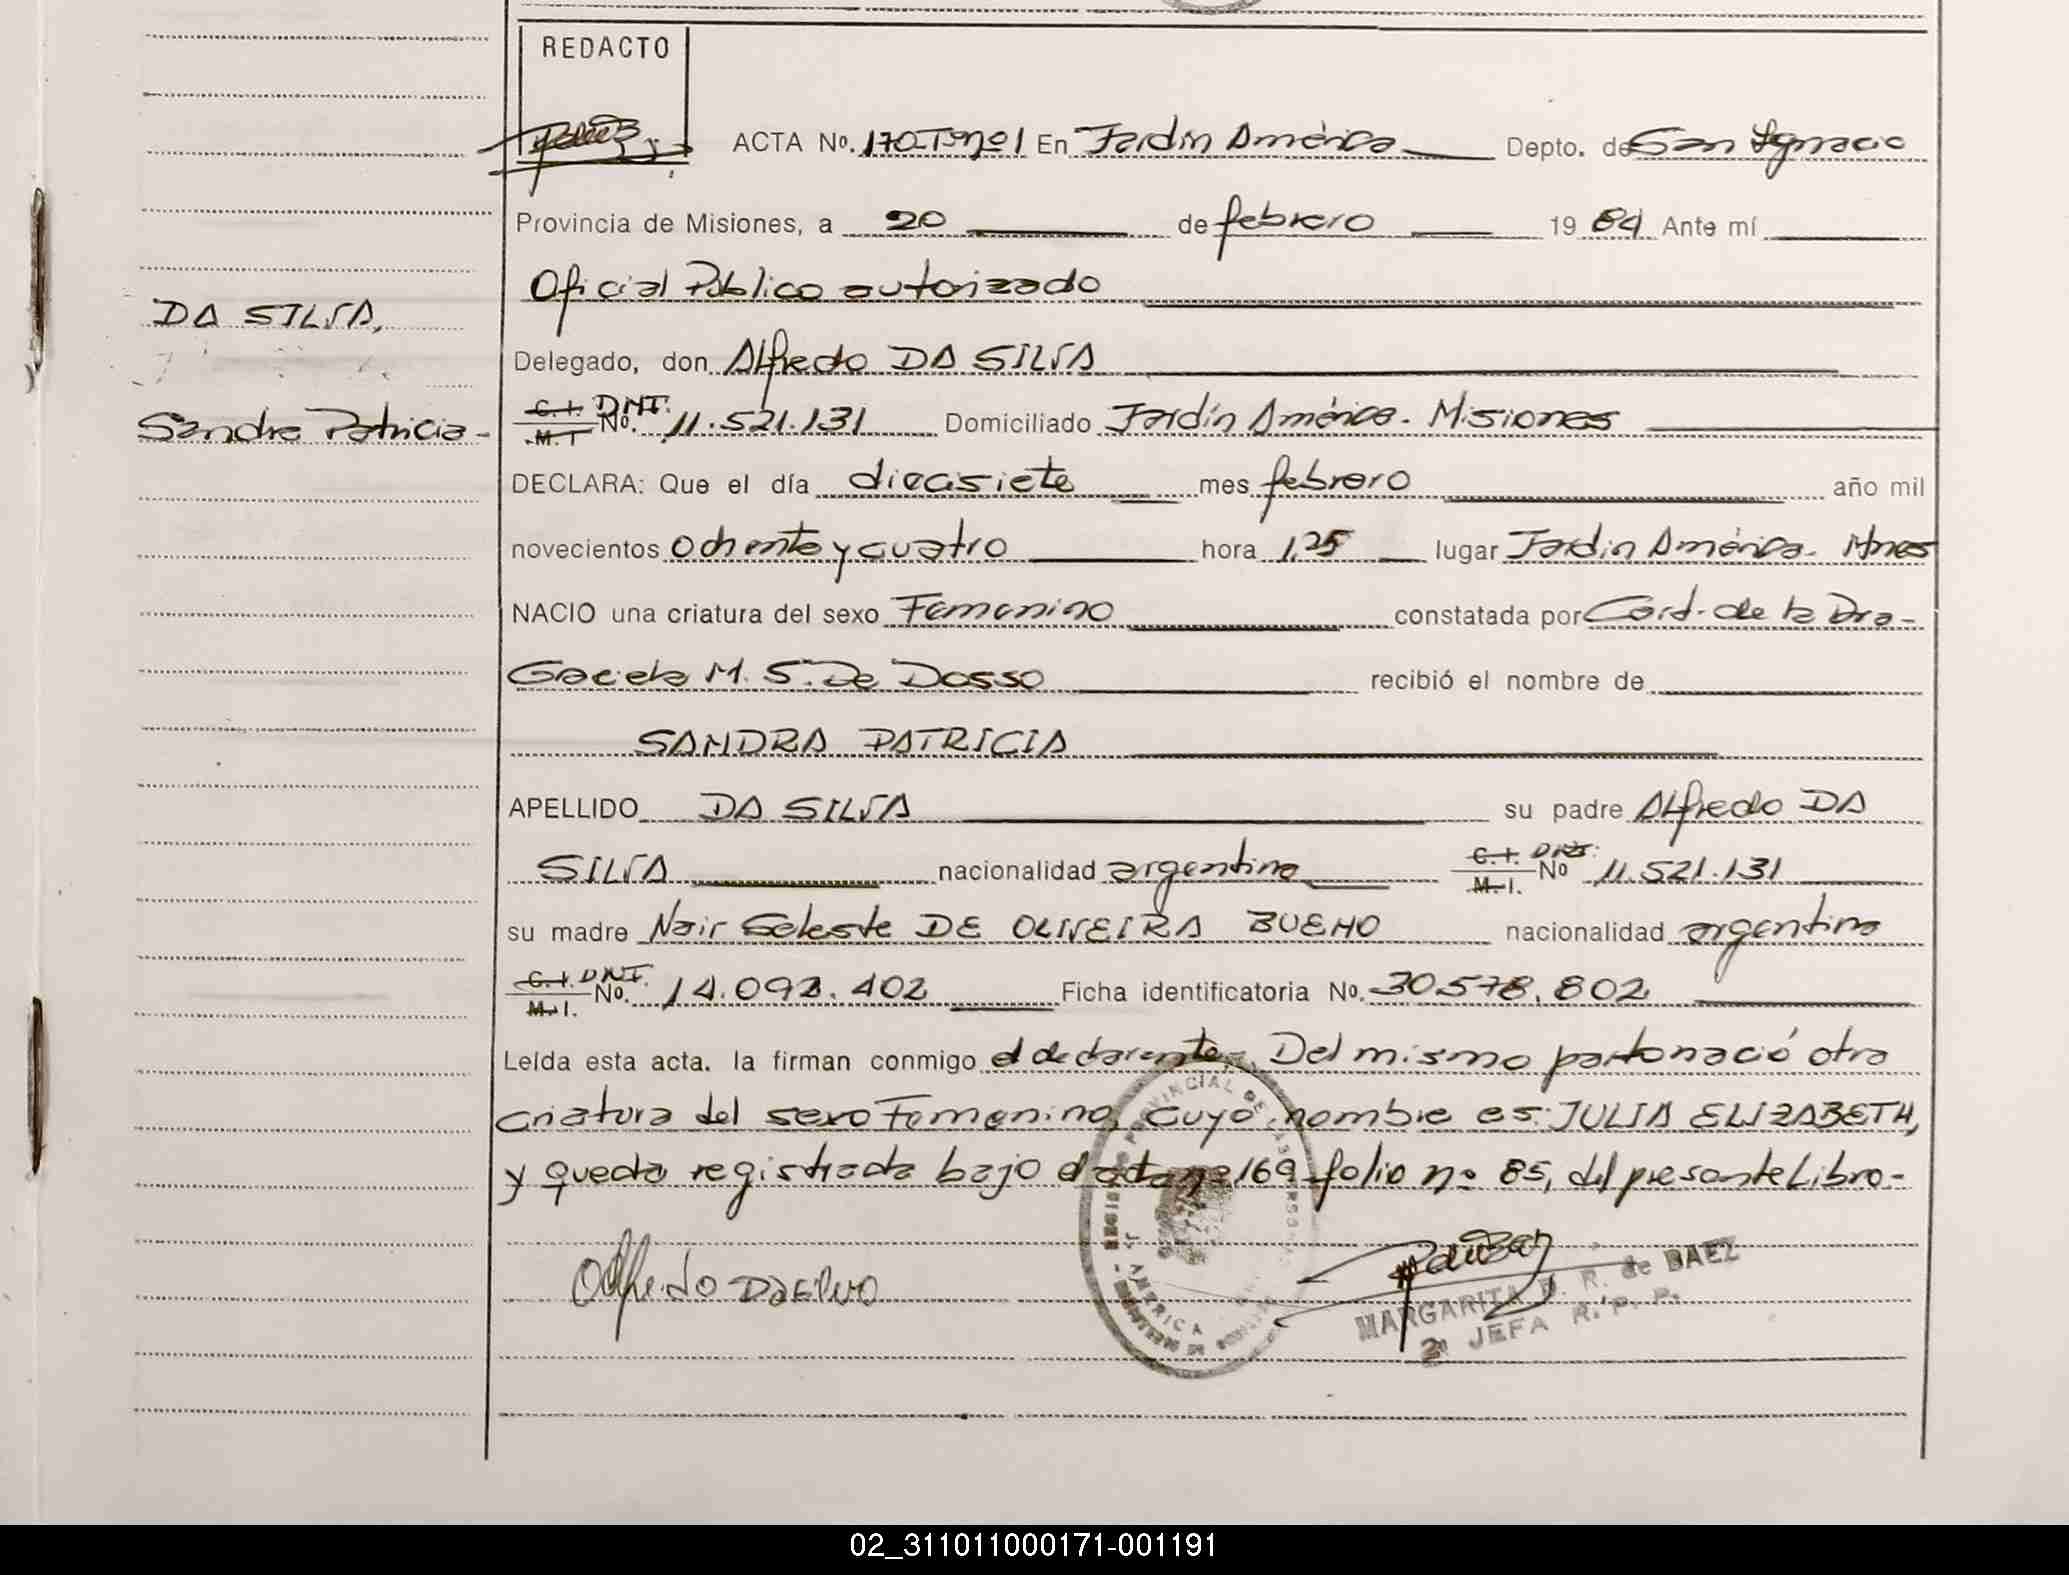 REDACTO
ACTA No. 170-Tomo 1 En Jardín América Depto. de San Ignacio
Provincia de Misiones, a 20 de febrero 19 84 Ante mí
Oficial Público autorizado
DA SILVA,
Delegado, don Alfredo DA SILVA
Sandra Patricia-
C.I. DNI. M.I. No. 11.521.131 Domiciliado Jardín América. Misiones
DECLARA: Que el día diecisiete mes febrero año mil
novecientos ochenta y cuatro hora 1,25 lugar Jardín América. Mnes
NACIO una criatura del sexo Femenino constatada por Cert. de la Dra-
Graciela M. S. De Dosso recibió el nombre de
SANDRA PATRICIA
APELLIDO DA SILVA su padre Alfredo DA
SILVA nacionalidad argentina C.I. DNI. M.I. No 11.521.131
su madre Nair Seleste DE OLIVEIRA BUENO nacionalidad argentina
C.I. DNI. M.I. No. 14.093.402 Ficha identificatoria No. 30.578.802
Leída esta acta. la firman conmigo el declarante, Del mismo parto nació otra
criatura del sexo Femenino, cuyo nombre es: JULIA ELIZABETH,
y queda registrada bajo el acta nº 169 folio nº 85, del presente Libro-
Alfredo DaSilva
MARGARITA B. R. de BAEZ
2ª JEFA R. P. P.
02_311011000171-001191